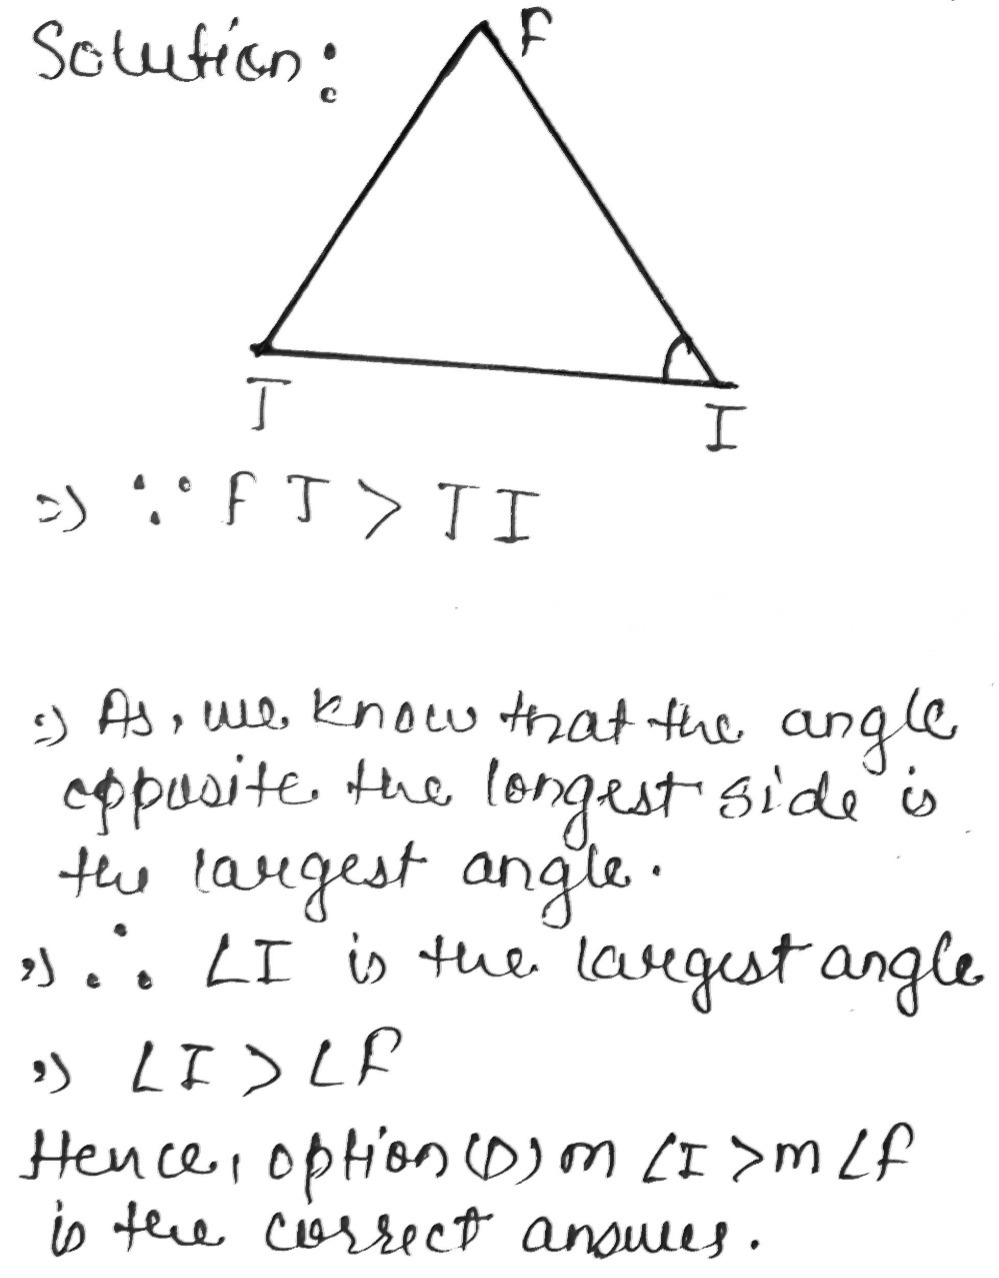 Solution:
F
T
I
⇒ ∵ FT > TI
⇒ As, we know that the angle
opposite the longest side is
the largest angle.
⇒ ∴ ∠I is the largest angle
⇒ ∠I > ∠F
Hence, option (D) m∠I > m∠F
is the correct answer.